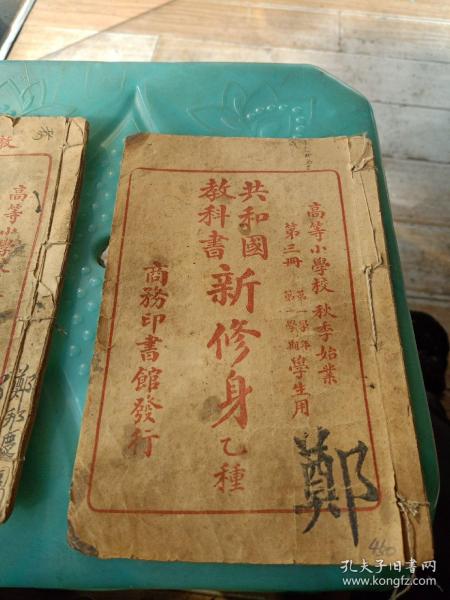 高等小學校 秋季始業
第三冊 第一學年 第一學期 學生用
共和國
教科書
新修身 乙種
商務印書館發行
鄭
460
高等小學校
鄭
孔夫子旧书网
www.kongfz.com